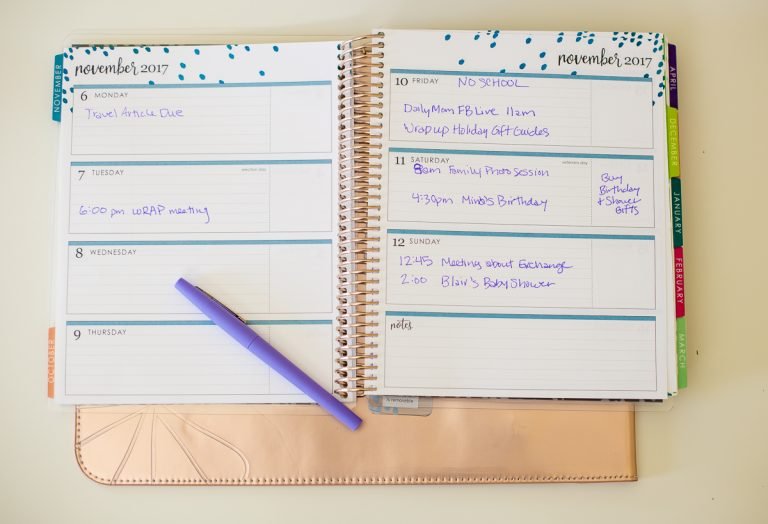 november 2017
NOVEMBER
6 MONDAY
Travel Article Due
7 TUESDAY
election day
6:00 pm WRAP meeting
8 WEDNESDAY
9 THURSDAY
OCTOBER
november 2017
10 FRIDAY NO SCHOOL
DailyMom FB Live 11am
Wrap up Holiday Gift Guides
11 SATURDAY
veterans day
8am Family Photo Session
4:30pm Mina's Birthday
Buy
Birthday
+ Shower
Gifts
12 SUNDAY
12:45 Meeting about Exchange
2:00 Blair's Baby Shower
notes
APRIL
DECEMBER
JANUARY
FEBRUARY
MARCH
is removable